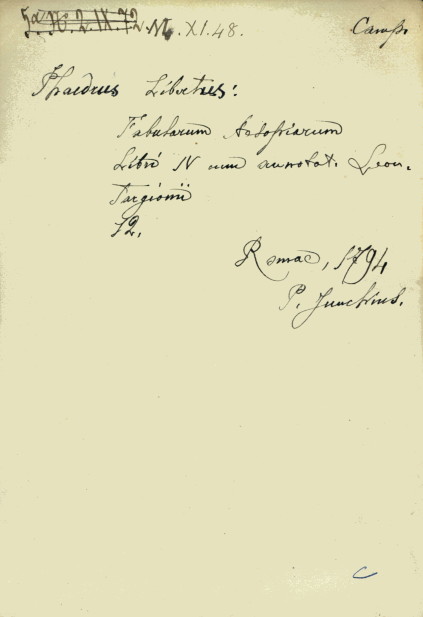 5a. N. 2. IX. 72. M. XI. 48.
Camp.
Phaedrus Libertus:
Fabularum Aesopiarum
Libri IV cum annotat. Leon.
Targionii
12.
Romae, 1794
P. Junchius.
C